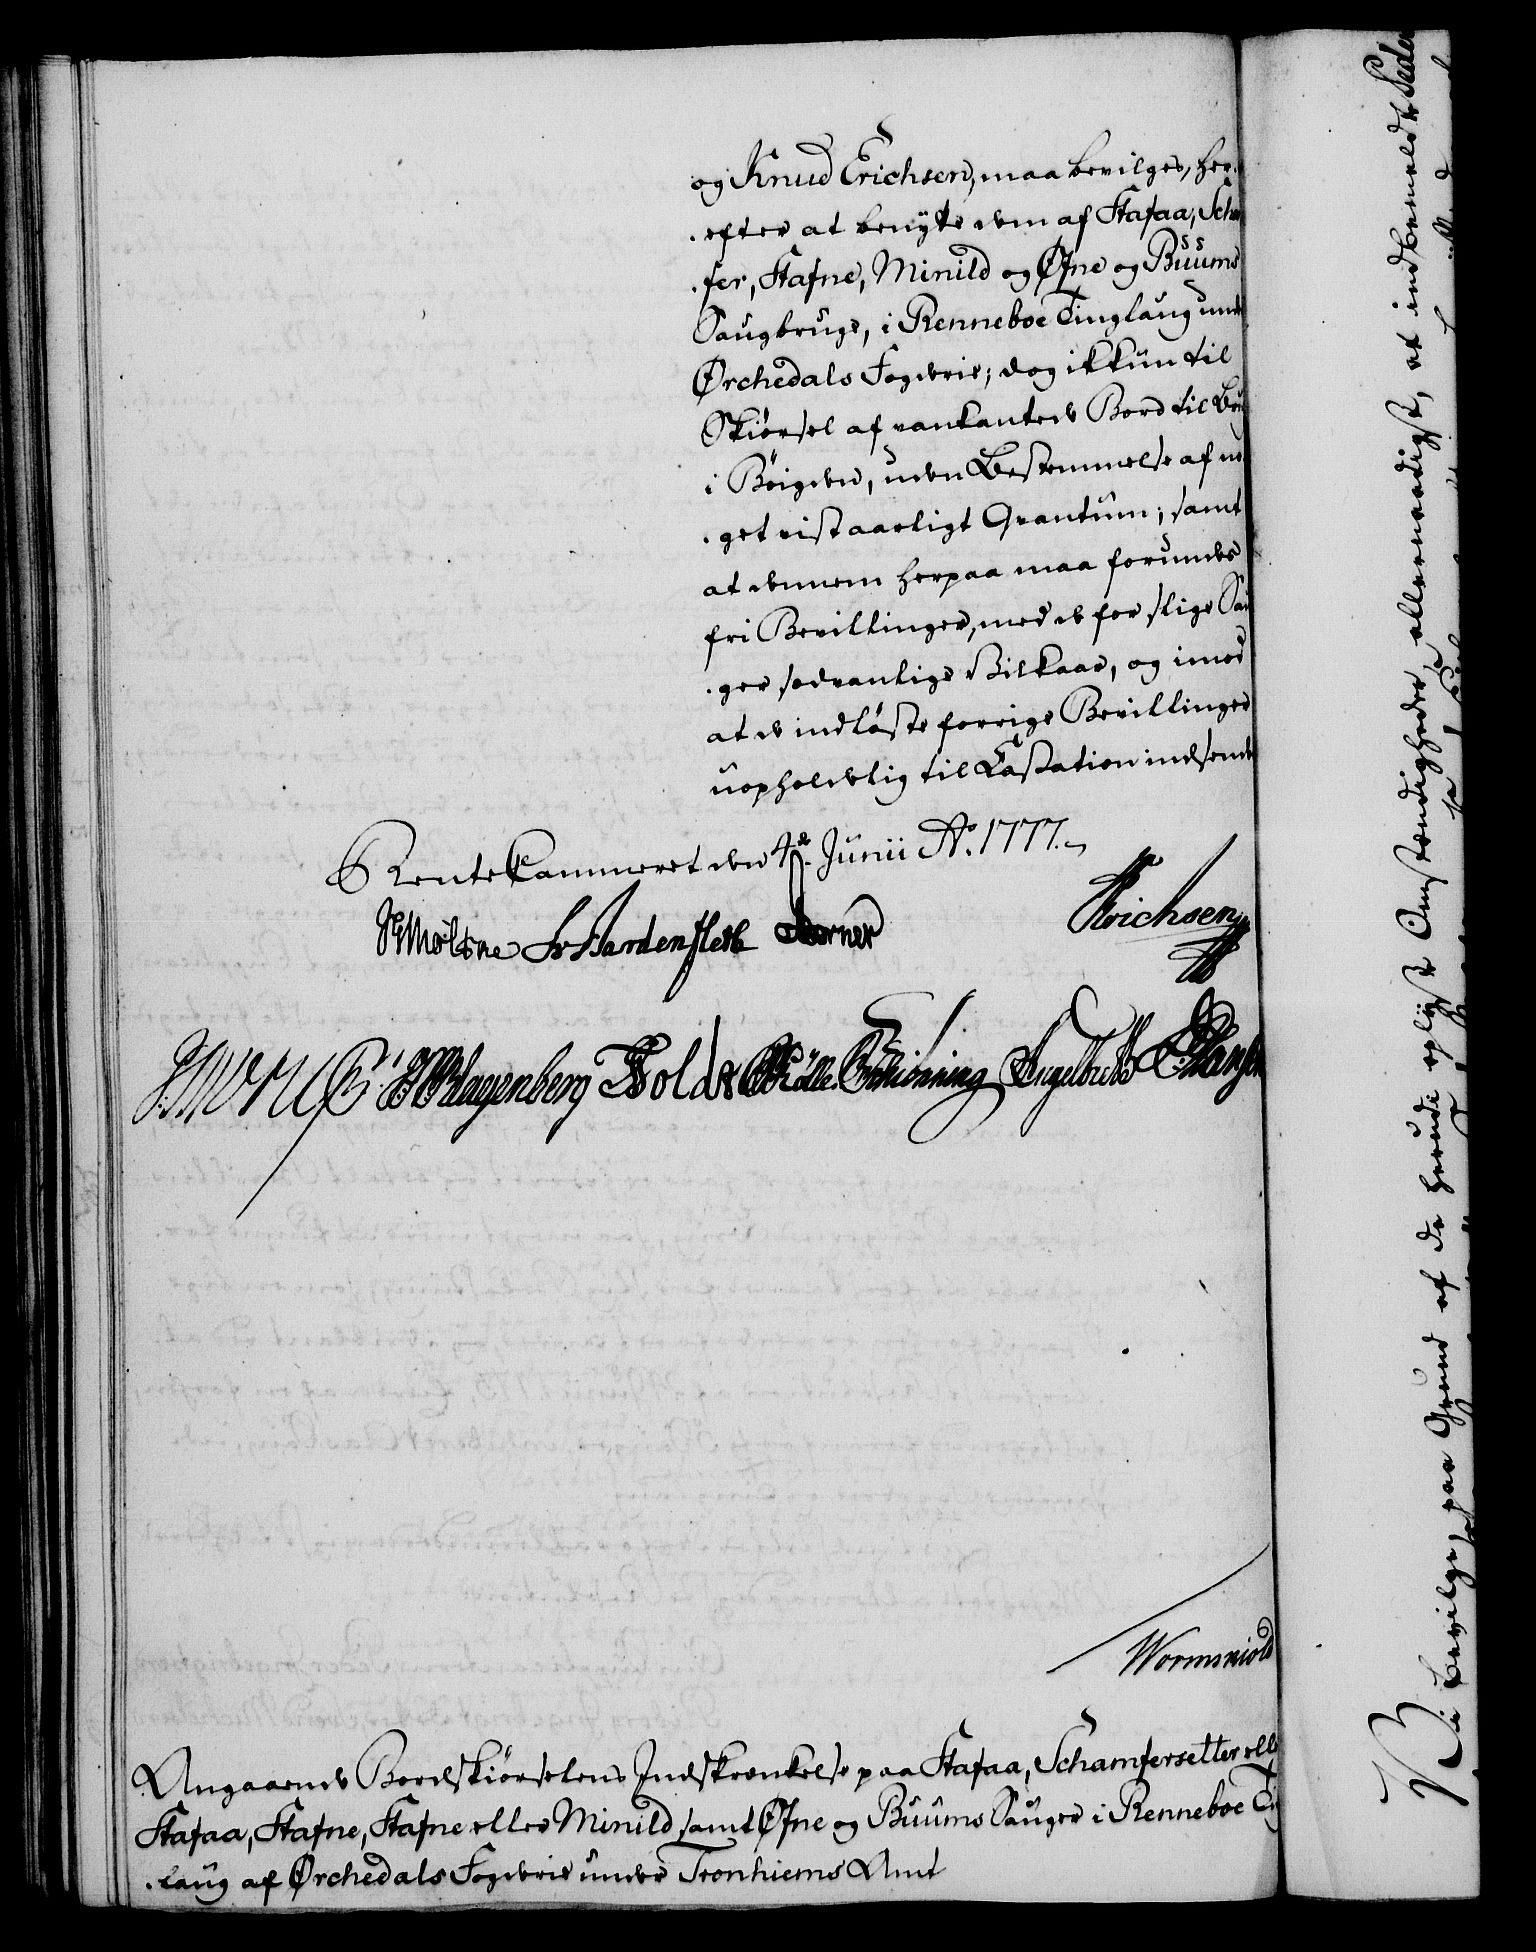 og Knud Erichsen, maa bevilges, her-
efter at benytte dem af Stafaa, Scham
fer, Stafne, Minild og Øfne og Buums
Saugbruge, i Renneboe Tinglaug under
Ørchedals Fogderie; dog ikkun til
Skiørsel af vankantede Bord til Brug
i Bøigden, uden Bestemmelse af no-
get vist aarligt Qvantum; samt
at dennem herpaa maa forundes
fri Bevillinger, med de for slige Sau
ger sædvanlige Vilkaar, og imod
at de indløste forrige Bevillinger
uopholdelig til Cassation indsendes
RenteCammeret den 4de Junii Ao. 1777.
Moltke Hardenfleth Berner
Erichsen
Wagenberg Holdt Müller Schiønning Engelbreth Hansen
Wormskiold
Angaaende Bordskiørselens Indskrænkelse paa Stafaa, Schamfersetter eller
Stafaa, Stafne, Stafne eller Minild samt Øfne og Buums Sauger i Renneboe Ting
laug af Ørchedals Fogderie under Tronhiems Amt
Vi bevilge, paa Grund af de herudi oplyste Omstændigheder, allernaadigst, at indbemeldte Peder